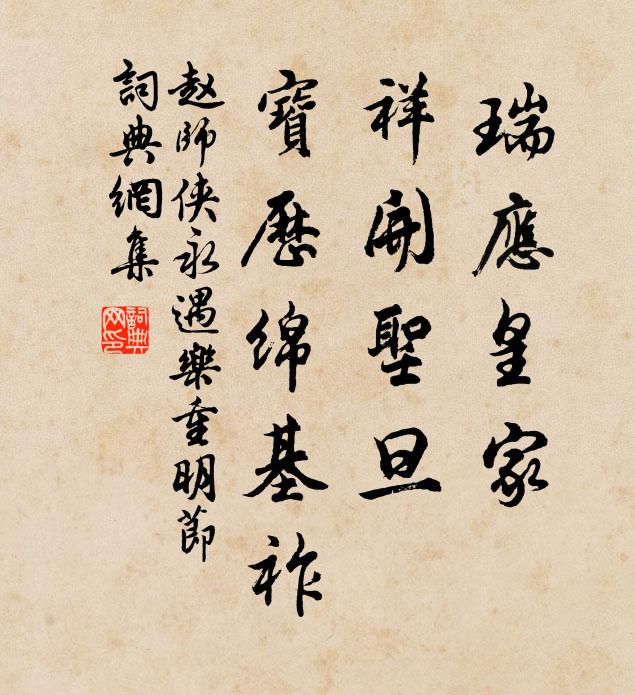 瑞應皇家
祥開聖旦
寶歷綿基祚
赵師俠永遇樂重明節
詞典網集
詞典
网印